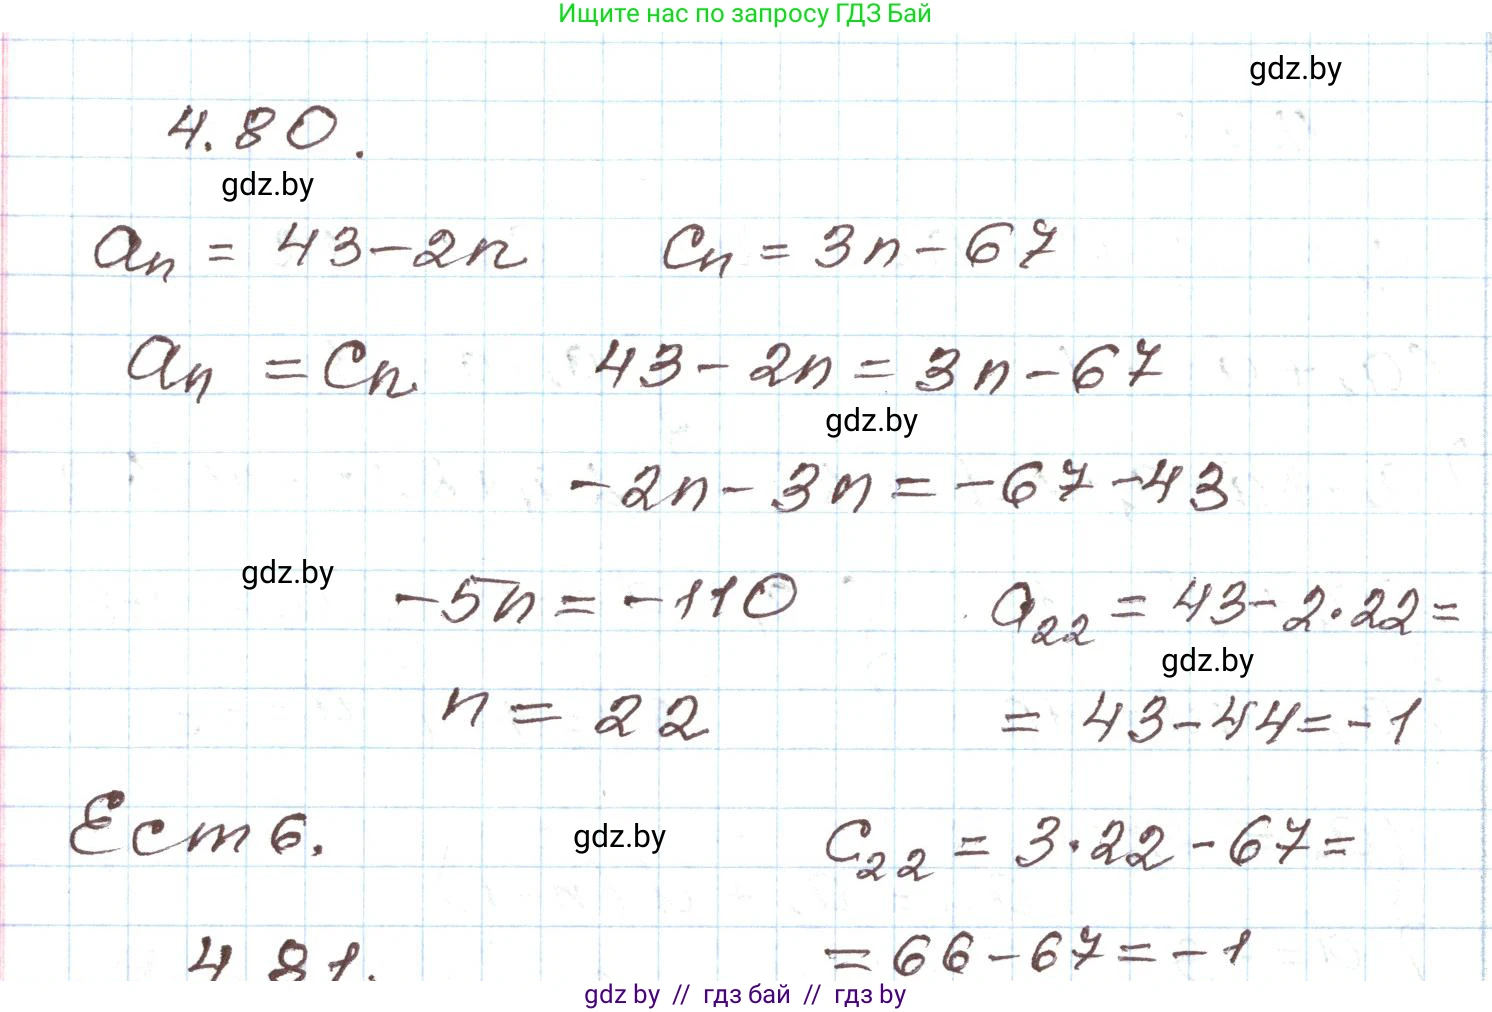 Ищите нас по запросу ГДЗ Бай
gdz.by
4.80.
gdz.by
aₙ = 43 - 2n   cₙ = 3n - 67
aₙ = cₙ   43 - 2n = 3n - 67
gdz.by
-2n - 3n = -67 - 43
gdz.by
-5n = -110   a₂₂ = 43 - 2·22 =
gdz.by
n = 22   = 43 - 44 = -1
Есть.   gdz.by   c₂₂ = 3·22 - 67 =
4 81.   = 66 - 67 = -1
gdz by // гдз бай // гдз by